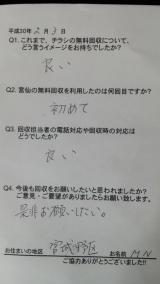 平成30年2月3日
Q1.これまで、チラシの無料回収について、
どう言うイメージをお持ちでしたか?
良い
Q2.宮仙の無料回収を利用したのは何回目ですか?
初めて
Q3.回収担当者の電話対応や回収時の対応は
どうでしたか?
良い
Q4.今後も回収をお願いしたいと思われましたか?
ご意見・ご要望がありましたらお願い致します。
是非お願いしたい。
お住まいの地区 宮城野区 お名前 M N
ご協力ありがとうございました!!